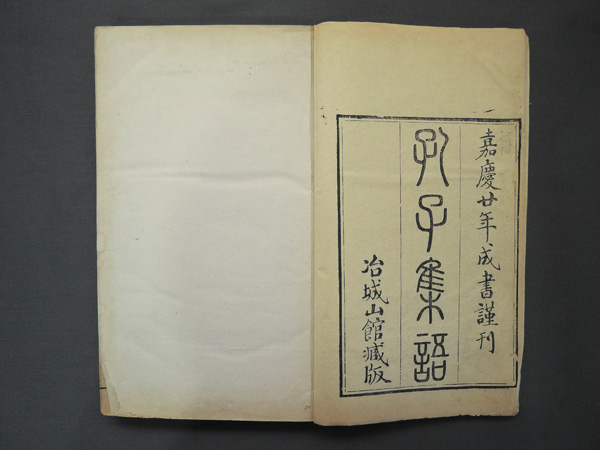 嘉慶廿年成書謹刊
孔子集語
冶城山館藏版